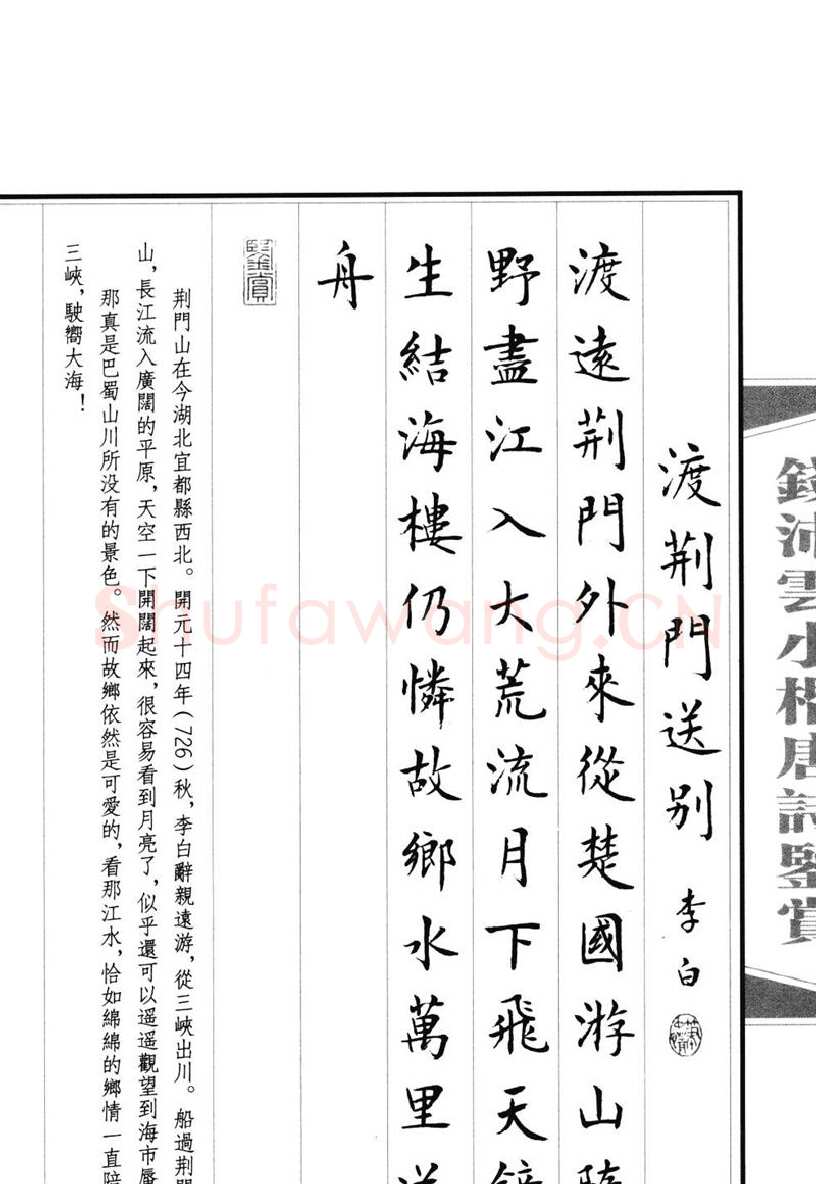 錢沛雲小楷唐詩鑒賞
渡荆門送别 李白
渡遠荆門外來從楚國游山隨
野盡江入大荒流月下飛天鏡
生結海樓仍憐故鄉水萬里送
舟
荆門山在今湖北宜都縣西北。開元十四年(726)秋,李白辭親遠游,從三峽出川。船過荆門
山,長江流入廣闊的平原,天空一下開闊起來,很容易看到月亮了,似乎還可以遥遥觀望到海市蜃
那真是巴蜀山川所没有的景色。然而故鄉依然是可愛的,看那江水,恰如綿綿的鄉情一直陪
三峽,駛嚮大海!
Shufawang.CN